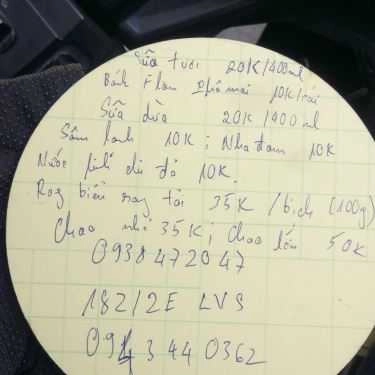 Sữa tươi 20K/400ml
Bánh Flan Phô mai 10K/cái
Sữa dừa 20K/400ml
Sâm lạnh 10K; Nha đam 10K
Nước bí đỏ 10K.
Rong biển tỏi 35K/bịch (100g)
Chao nhỏ 35K; Chao lớn 50K
0938472047
182/2E LVS
094 3 44 0362